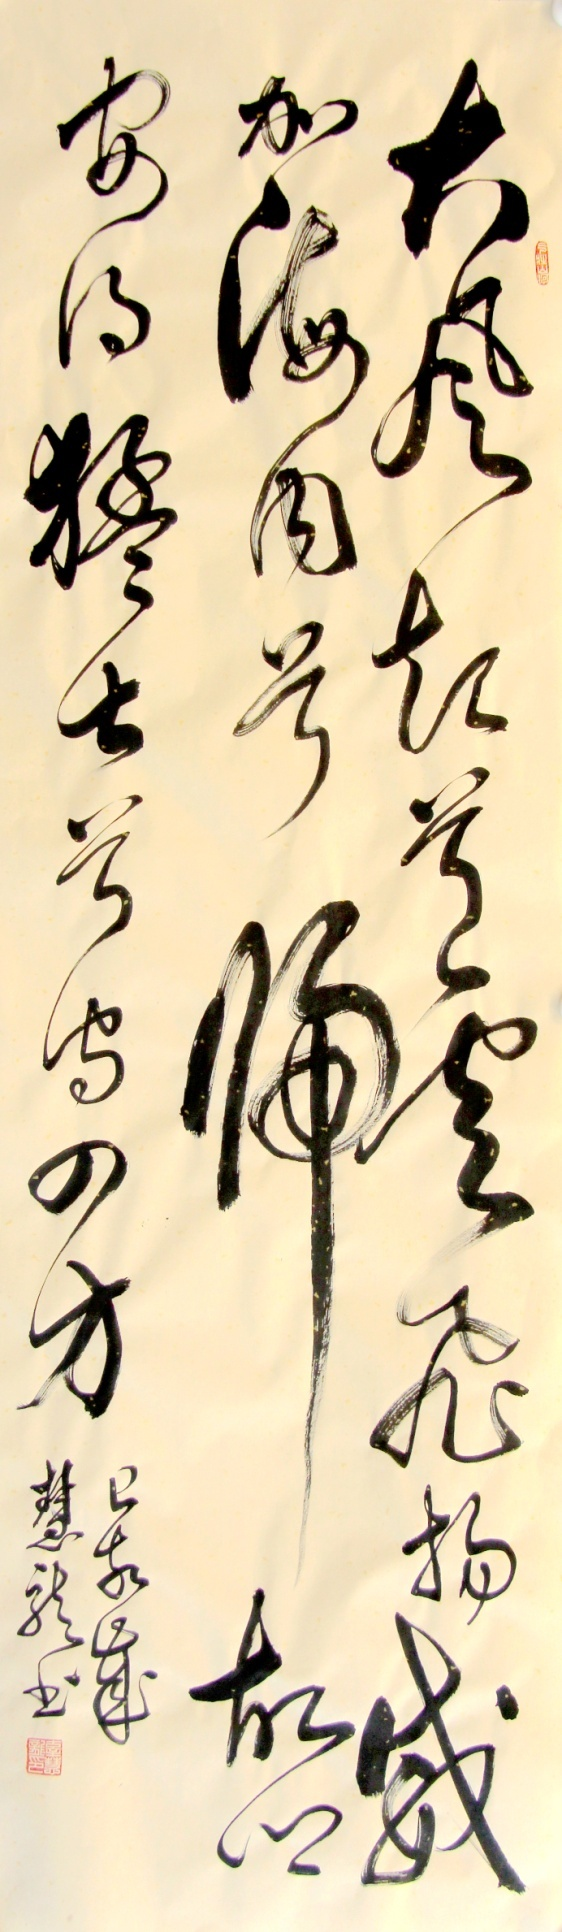 大风起兮云飞扬威
加海内兮归故乡
安得猛士兮守四方
己亥岁
慧龙书